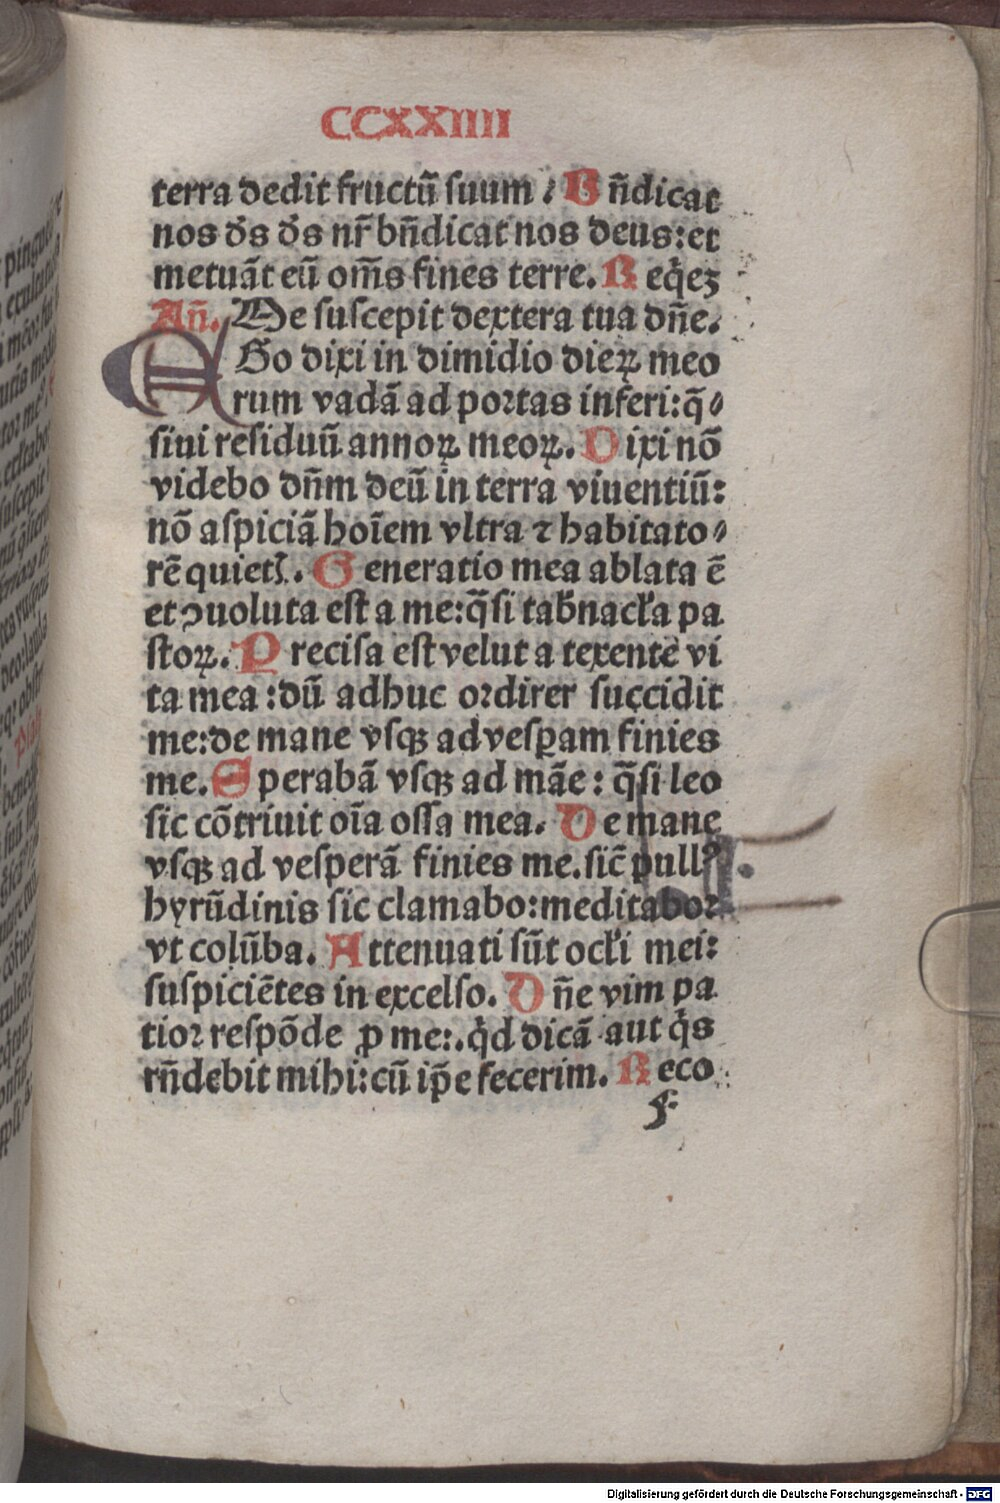 CCXXIIII
terra dedit fructū suum : B n̄dicat
nos ds̄ ds̄ nr̄ bn̄dicat nos deus: et
metuāt eū om̄s fines terre. R eq̇eꝫ
An̄. Me suscepit dextera tua dn̄e.
E Go dixi in dimidio dieꝝ meo
rum vadā ad portas inferi: q̄⸗
siui residuū annoꝝ meoꝝ. D ixi nō
videbo dn̄m deū in terra viuentiū:
nō aspiciā hoīem vltra ⁊ habitato⸗
rē quietꝭ. G eneratio mea ablata ē
et ꝯuoluta est a me: q̄si tab̄nacl̄a pa
stoꝝ. P recisa est velut a texente vi
ta mea : dū adhuc ordirer succidit
me: de mane vsqꝫ ad vesꝑam finies
me. S perabā vsqꝫ ad māe : q̄si leo
sic cōtriuit oīa ossa mea. D e mane
vsqꝫ ad vesperā finies me. sic̄ pullꝰ
hyrūdinis sic clamabo: meditabor
vt colūba. A ttenuati sūt ocl̄i mei:
suspiciētes in excelso. D n̄e vim pa
tior respōde ꝓ me: . q̇d dicā aut q̇s
rn̄debit mihi: cū ip̄e fecerim. R eco
f
Digitalisierung gefördert durch die Deutsche Forschungsgemeinschaft - DFG